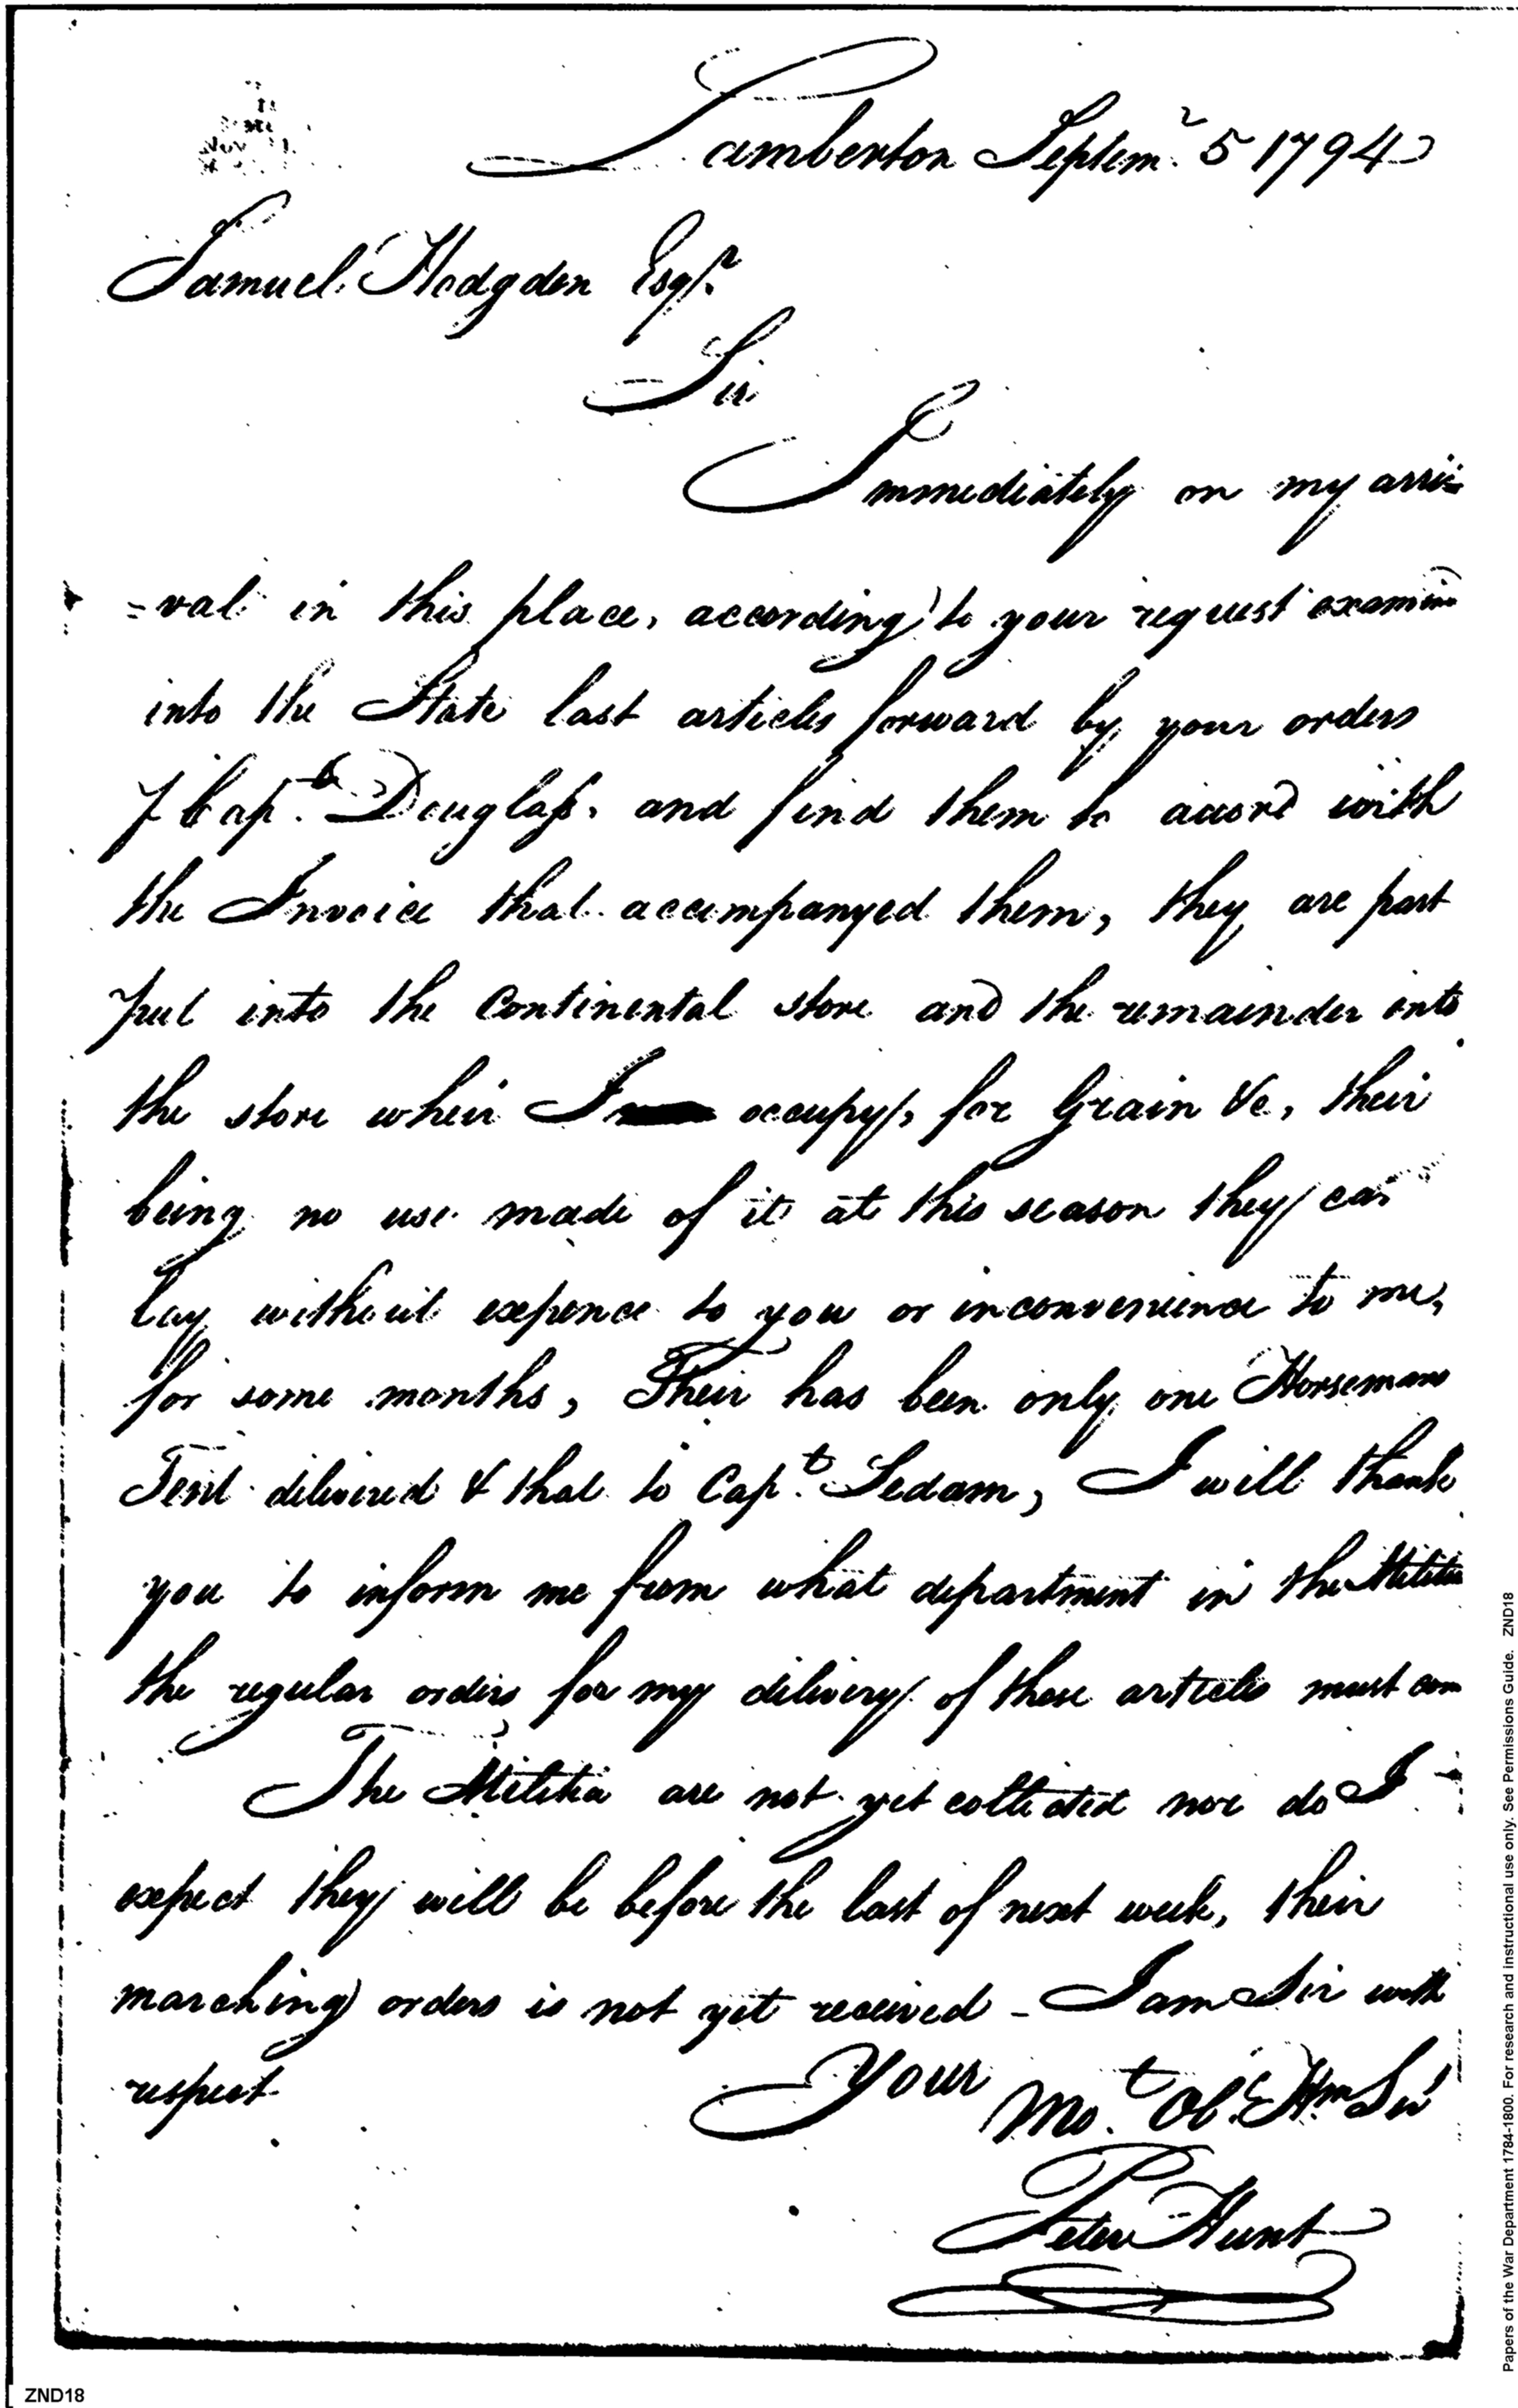 Lamberton Septemr. 5 1794
Samuel Hodgden Esqr.
Sir
Immediately on my arri=
=val in this place, according to your request examin
into the State last articles forward by your orders
Capt. Douglass, and find them to accord with
the Invoice that accompanyed them, they are part
put into the Continental store and the remainder into
the store wheir I occupy, for Grain &c, their
being no use made of it at this season they can
lay without expence to you or inconvenience to me,
for some months, Their has been only one Horsemans
Tent delivered & that to Capt. Sedam, I will thank
you to inform me from what department in the Militia
the regular orders for my delivery of those articles must com
The Militia are not yet collected nor do I
expect they will be before the last of next week, their
marching orders is not yet received - I am Sir with
respect
Your Mot. Obt. Hm Sr
Peter Hunt
Papers of the War Department 1784-1800. For research and instructional use only. See Permissions Guide. ZND18
ZND18